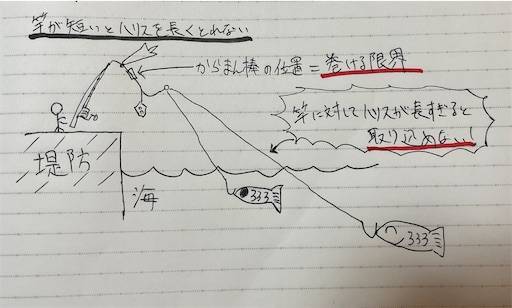 竿が短いとハリスを長くとれない
からまん棒の位置=巻ける限界
竿に対してハリスが長すぎると
取り込めない!
堤防
海
333
333